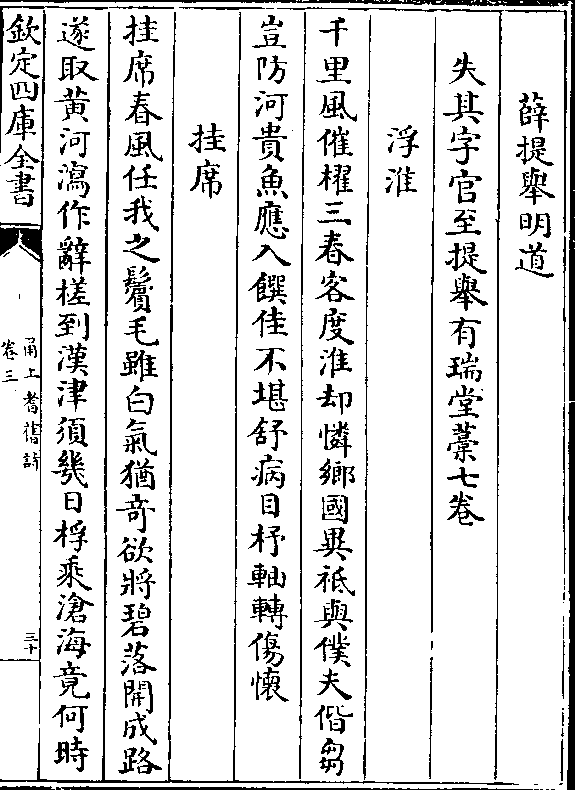 薛提舉明道
失其字官至提舉有瑞堂藁七卷
浮淮
千里風催櫂三春客度淮却憐鄉國異祗與僕夫偕芻
豈防河貴魚應入饌佳不堪舒病目杼軸轉傷懷
挂席
挂席春風任我之鬢毛雖白氣猶奇欲將碧落開成路
遂取黄河瀉作辭槎到漢津須幾日桴乘滄海竟何時
欽定四庫全書
甬上耆舊詩
卷三
三十